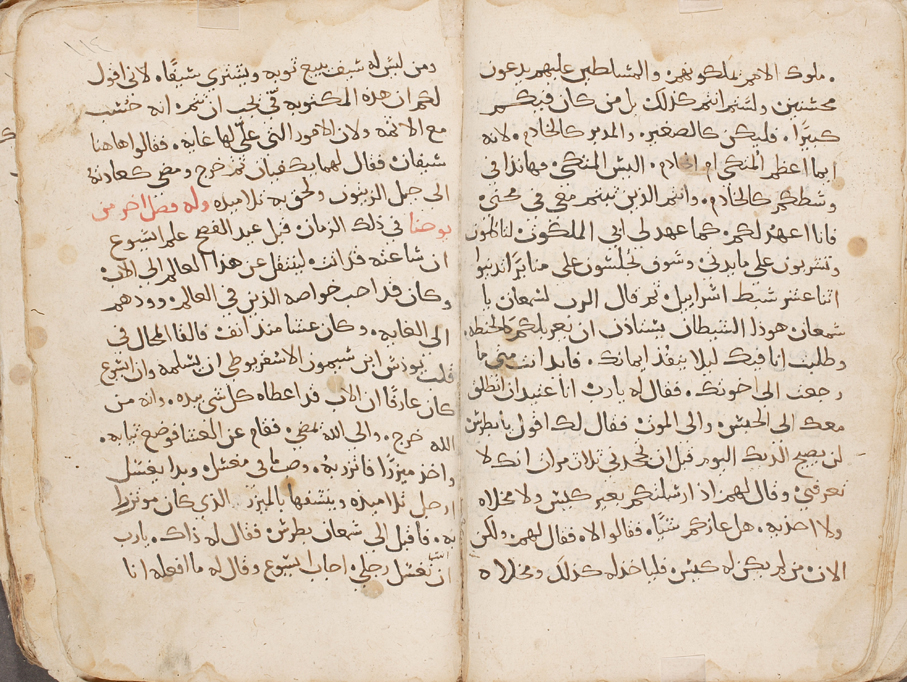 ملوك الامم ملكوهم والمسلطين عليهم يدعون
محسنين ولستم انتم كذلك بل من كان فيكم
كبيرًا فليكن كالصغير والمدبر كالخادم لانه
ايما اعظم المتكي ام الخادم اليس المتكي فهانذا في
وسطكم كالخادم وانتم الذين ثبتم معي في محني
فانا اعهد لكم كما عهد لي ابي الملكوت لتاكلون
وتشربون على مايدتي وسوف تجلسون على منابرًا تدينوا
اثنا عشر سبط اسراييل ثم قال الرب لسمعان يا
سمعان هوذا الشيطان يستاذن ان يغربلكم كالحنطه
وطلبت انا فيك ليلا ينفذ ايمانك فاذا انت متى ما
رجعت الى اخوتك فقال له يارب انا عتيد ان انطلق
معك الى الحبس والى الموت فقال لك اقول يا بطرس
لن يصيح الديك اليوم قبل ان تجحدني ثلاث مرات انك لا
تعرفني وقال لهم اذ ارسلتكم بغير كيس ولا مخلاه
ولا احذيه هل عازكم شيًا فقالوا لا فقال لهم ولكن
الان من لم يكن له كيس فلياخذ له كذلك ومخلاه
ومن ليس له سيف يبيع ثوبه ويشتري سيفًا لاني اقول
لكم ان هذه المكتوبه فيّ يجب ان تتم انه حسب
مع الاثمه ولان الامور التي عليّ لها غايه فقالوا هاهنا
سيفان فقال لهما يكفيان ثم خرج ومضى كعادته
الى جبل الزيتون ولحق به تلاميذه وله فصل اخر من
يوحنا في ذلك الزمان قبل عيد الفصح علم ايسوع
ان ساعته قد اتت لينتقل عن هذا العالم الى الاب
وكان قد احب خواصه الذين في العالم وودهم
الى الغايه وكان عشا منذ انف فالقا المحال في
قلب يوذس ابن سيمون الاسخريوطي ان يسلمه وان ايسوع
كان عارفًا ان الاب قد اعطاه كل شي بيده وانه من
الله خرج والى الله يمضي فقام عن العشا فوضع ثيابه
واخذ ميزرًا فاتزر به وصب ما في مغسله وبدا يغسل
ارجل تلاميذه وينشفها بالميزر الذي كان موتزرا
به فاقبل الى سمعان بطرس فقال له ذاك يارب
انت تغسل رجلي اجاب ايسوع وقال له ما افعله انا